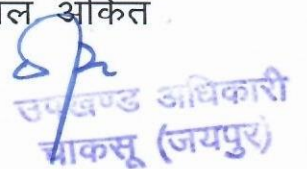 अंकित
उपखण्ड अधिकारी
चाकसू (जयपुर)